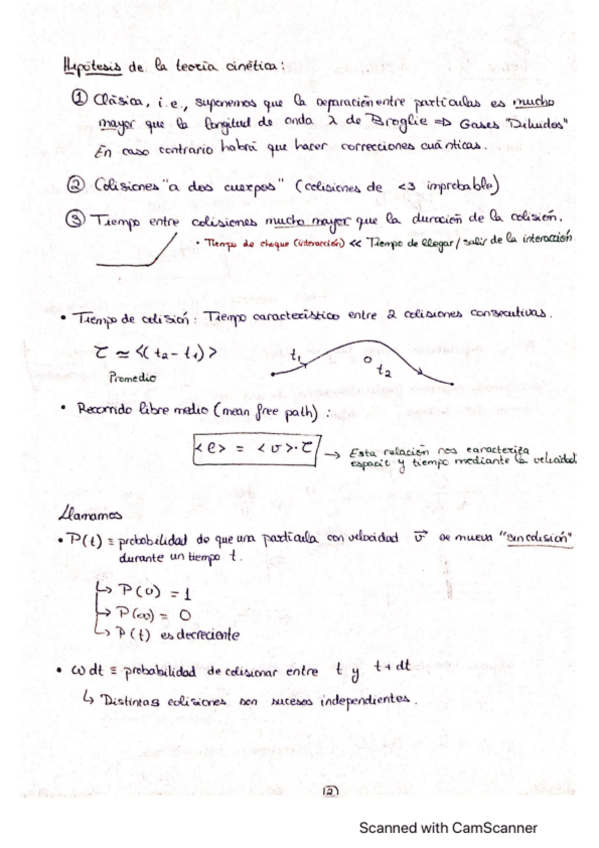 Hipótesis de la teoría cinética:
① Clásica, i.e., suponemos que la separación entre partículas es mucho
mayor que la longitud de onda λ de Broglie => Gases "Diluidos"
En caso contrario habrá que hacer correcciones cuánticas.
② Colisiones "a dos cuerpos" (colisiones de <3 improbable)
③ Tiempo entre colisiones mucho mayor que la duración de la colisión.
• Tiempo de choque (interacción) << Tiempo de llegar/salir de la interacción
• Tiempo de colisión: Tiempo característico entre 2 colisiones consecutivas.
τ ≃ <(t₂ - t₁)>
t₁
t₂
Promedio
• Recorrido libre medio (mean free path):
<l> = <v>·τ → Esta relación nos caracteriza
espacio y tiempo mediante la velocidad
Llamamos
• P(t) ≡ probabilidad de que una partícula con velocidad v⃗ se mueva "sin colisión"
durante un tiempo t.
↳ P(0) = 1
↳ P(∞) = 0
↳ P(t) es decreciente
• ω dt ≡ probabilidad de colisionar entre t y t+dt
↳ Distintas colisiones son sucesos independientes.
2
Scanned with CamScanner